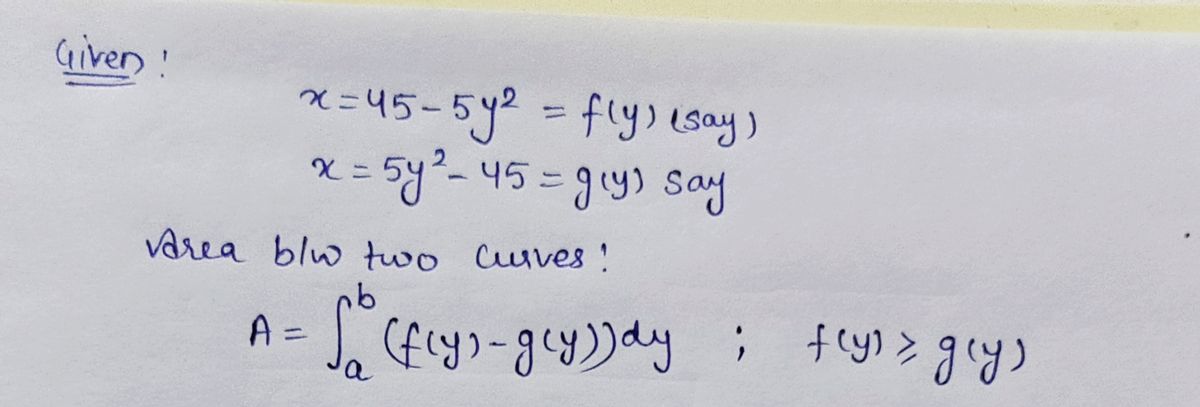 Given :
x = 45 - 5y² = f(y) (say)
x = 5y² - 45 = g(y) say
Area b/w two curves :
A = ∫ₐᵇ (f(y) - g(y)) dy ; f(y) ≥ g(y)